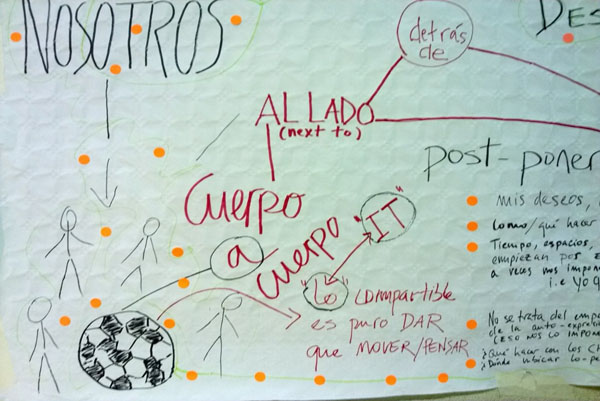 NOSOTROS
DES
detrás
de
AL LADO
(next to)
post-poner
Cuerpo
a
cuerpo
"IT"
"Lo" compartible
es puro DAR
que MOVER/PENSAR
mis deseos,
como/qué hacer
Tiempo, espacios,
empiezan por
a veces nos impon
i.e Yo q
No se trata del emp
de la auto-expresi
(ESO NOS LO IMPONE
¿Qué hacer con los CH
¿Dónde ubicar lo-pe